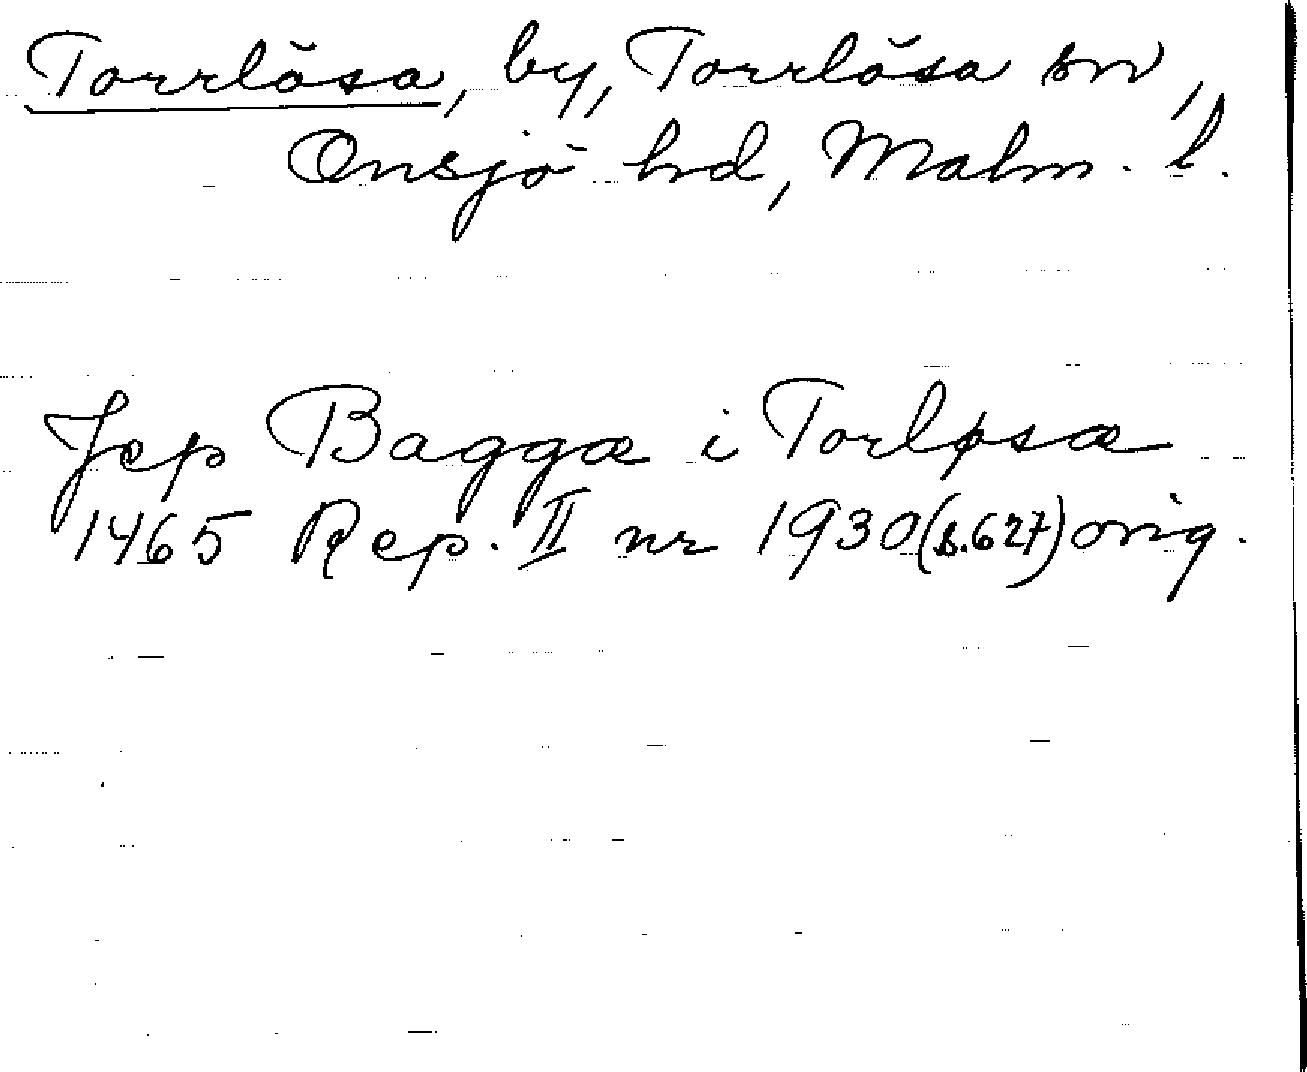 Torrlösa, by, Torrlösa sn,
Onsjö hd, Malm. l.
Jep Baggæ i Torløsæ
1465 Rep. II nr 1930 (s. 627) orig.